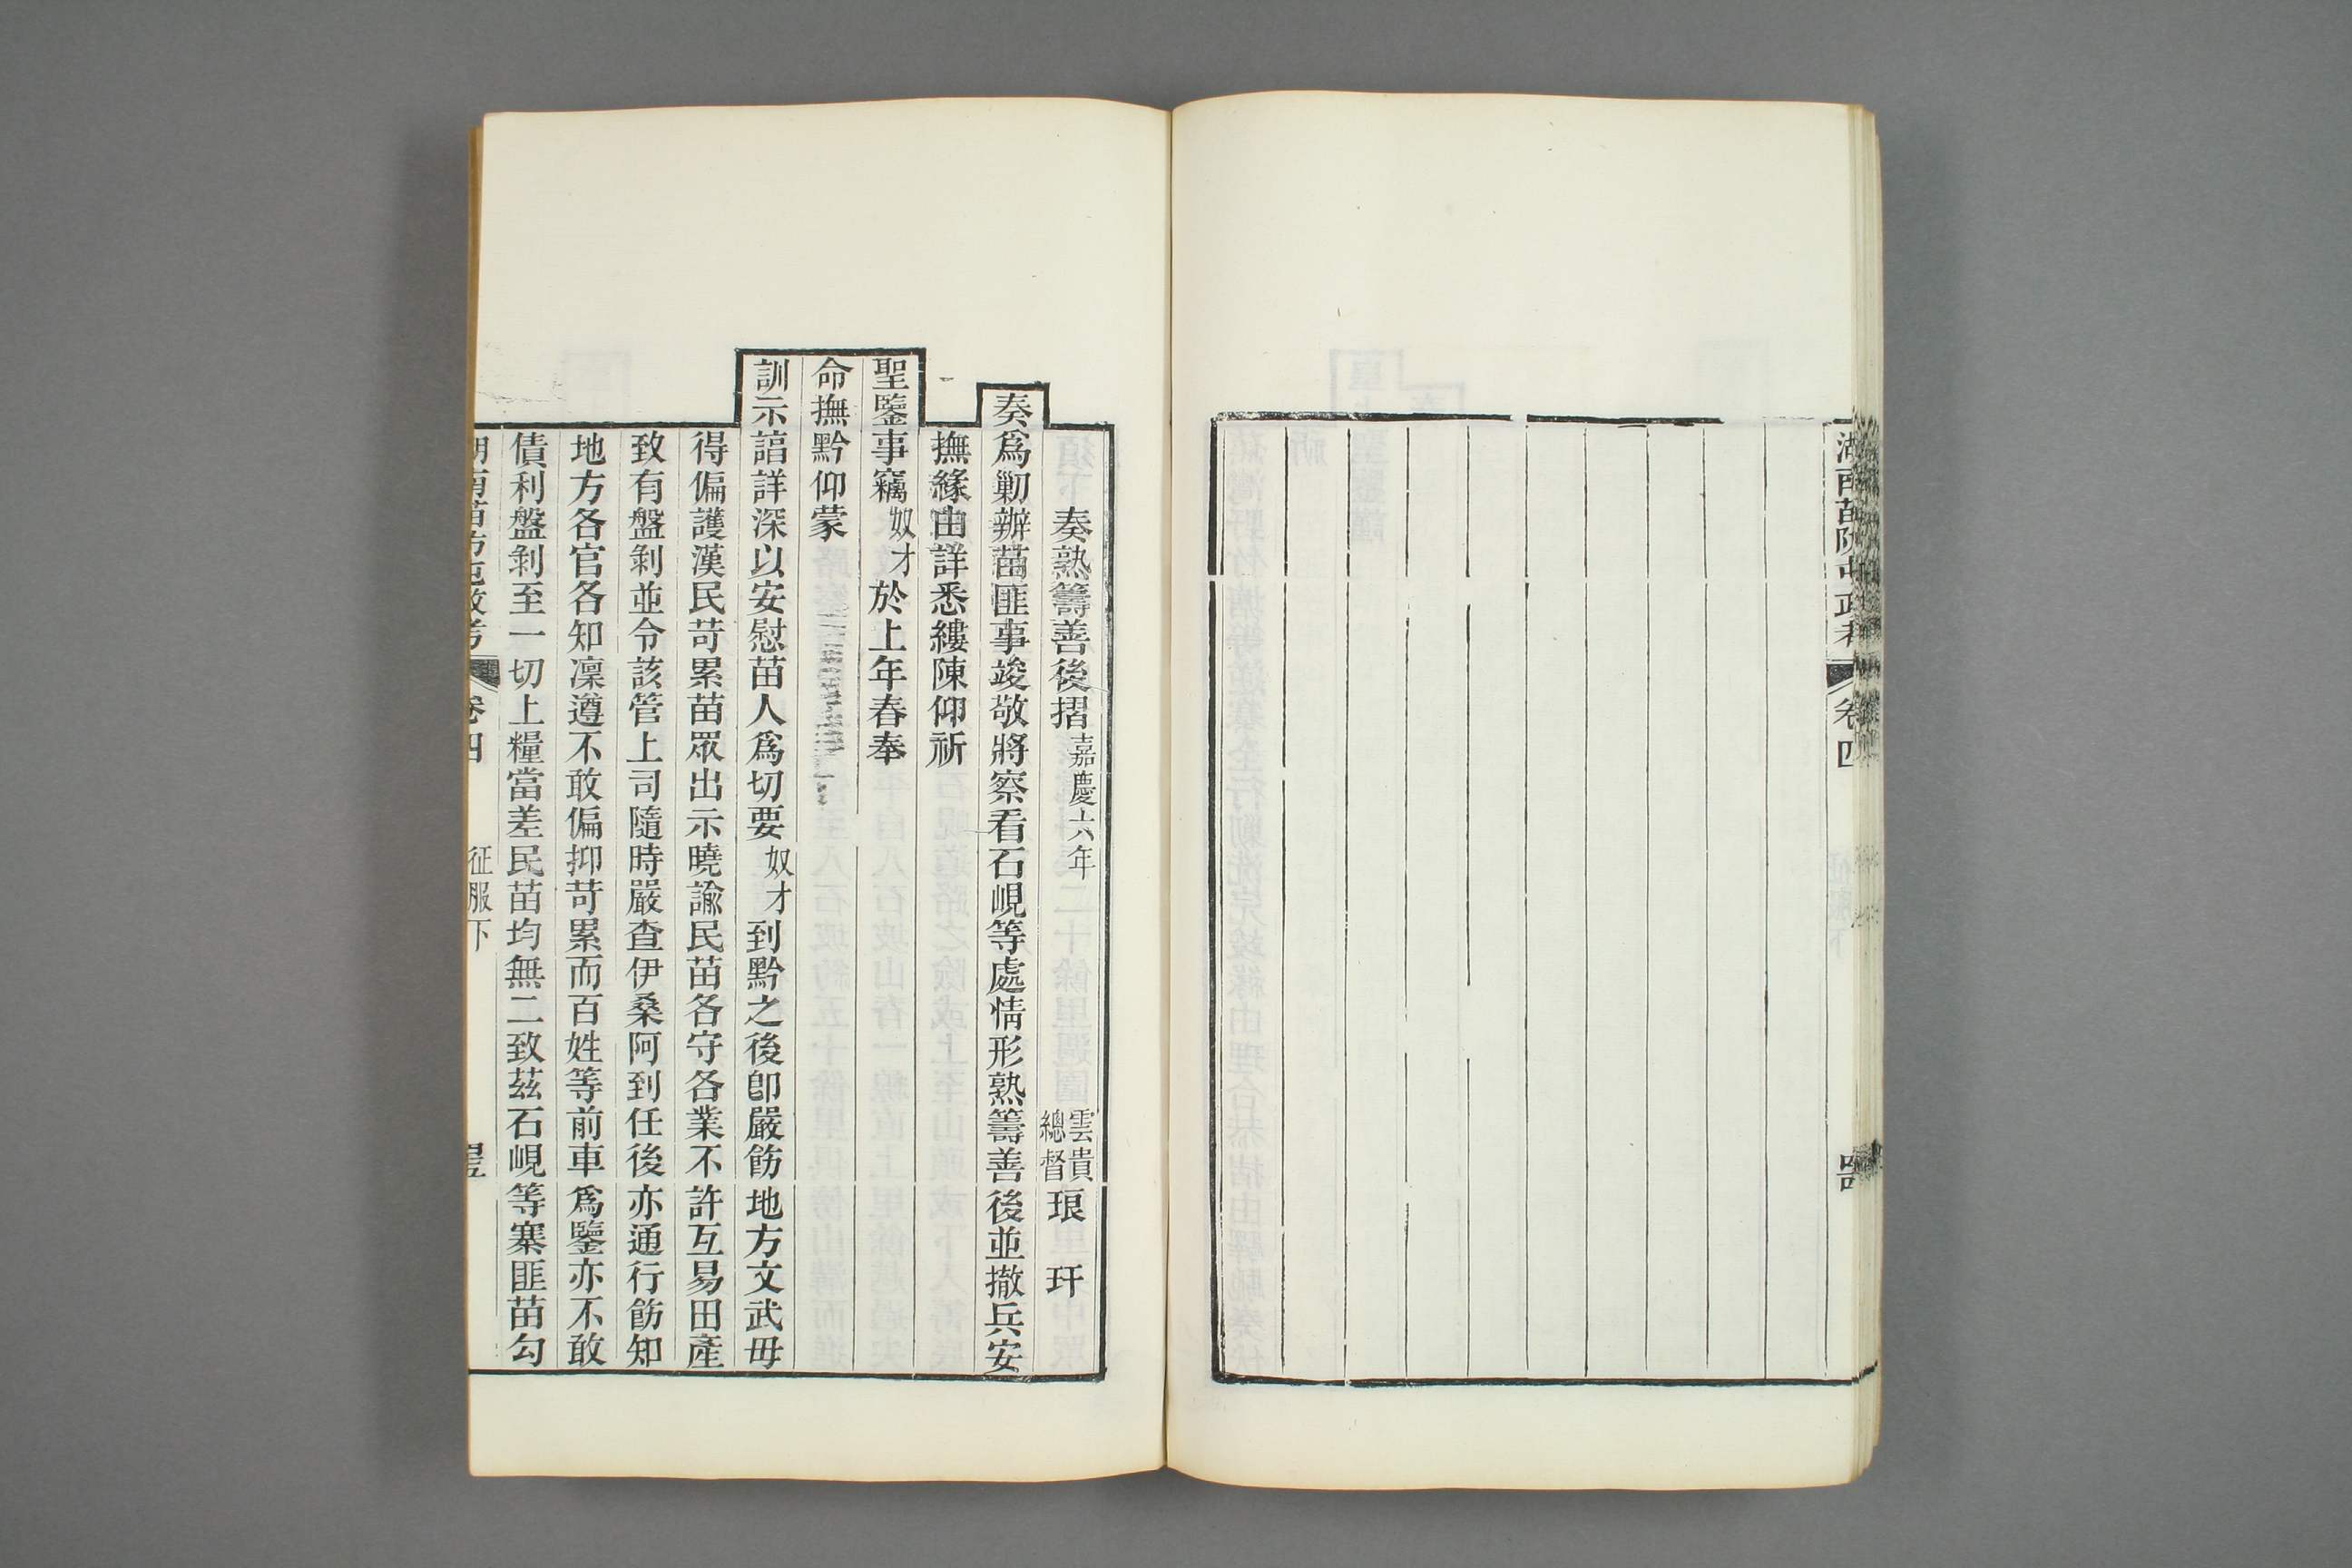 湖南苗防屯政考
卷四
奏熟籌善後摺 嘉慶六年 雲貴總督 琅玕
奏爲勦辦苗匪事竣敬將察看石峴等處情形熟籌善後並撤兵安
撫緣由詳悉縷陳仰祈
聖鑒事竊奴才於上年春奉
命撫黔仰蒙
訓示諄詳深以安慰苗人爲切要奴才到黔之後卽嚴飭地方文武毋
得偏護漢民苛累苗眾出示曉諭民苗各守各業不許互易田產
致有盤剝並令該管上司隨時嚴查伊桑阿到任後亦通行飭知
地方各官各知凜遵不敢偏抑苛累而百姓等前車爲鑒亦不敢
債利盤剝至一切上糧當差民苗均無二致茲石峴等寨匪苗勾
湖南苗防屯政考 卷四 征服下